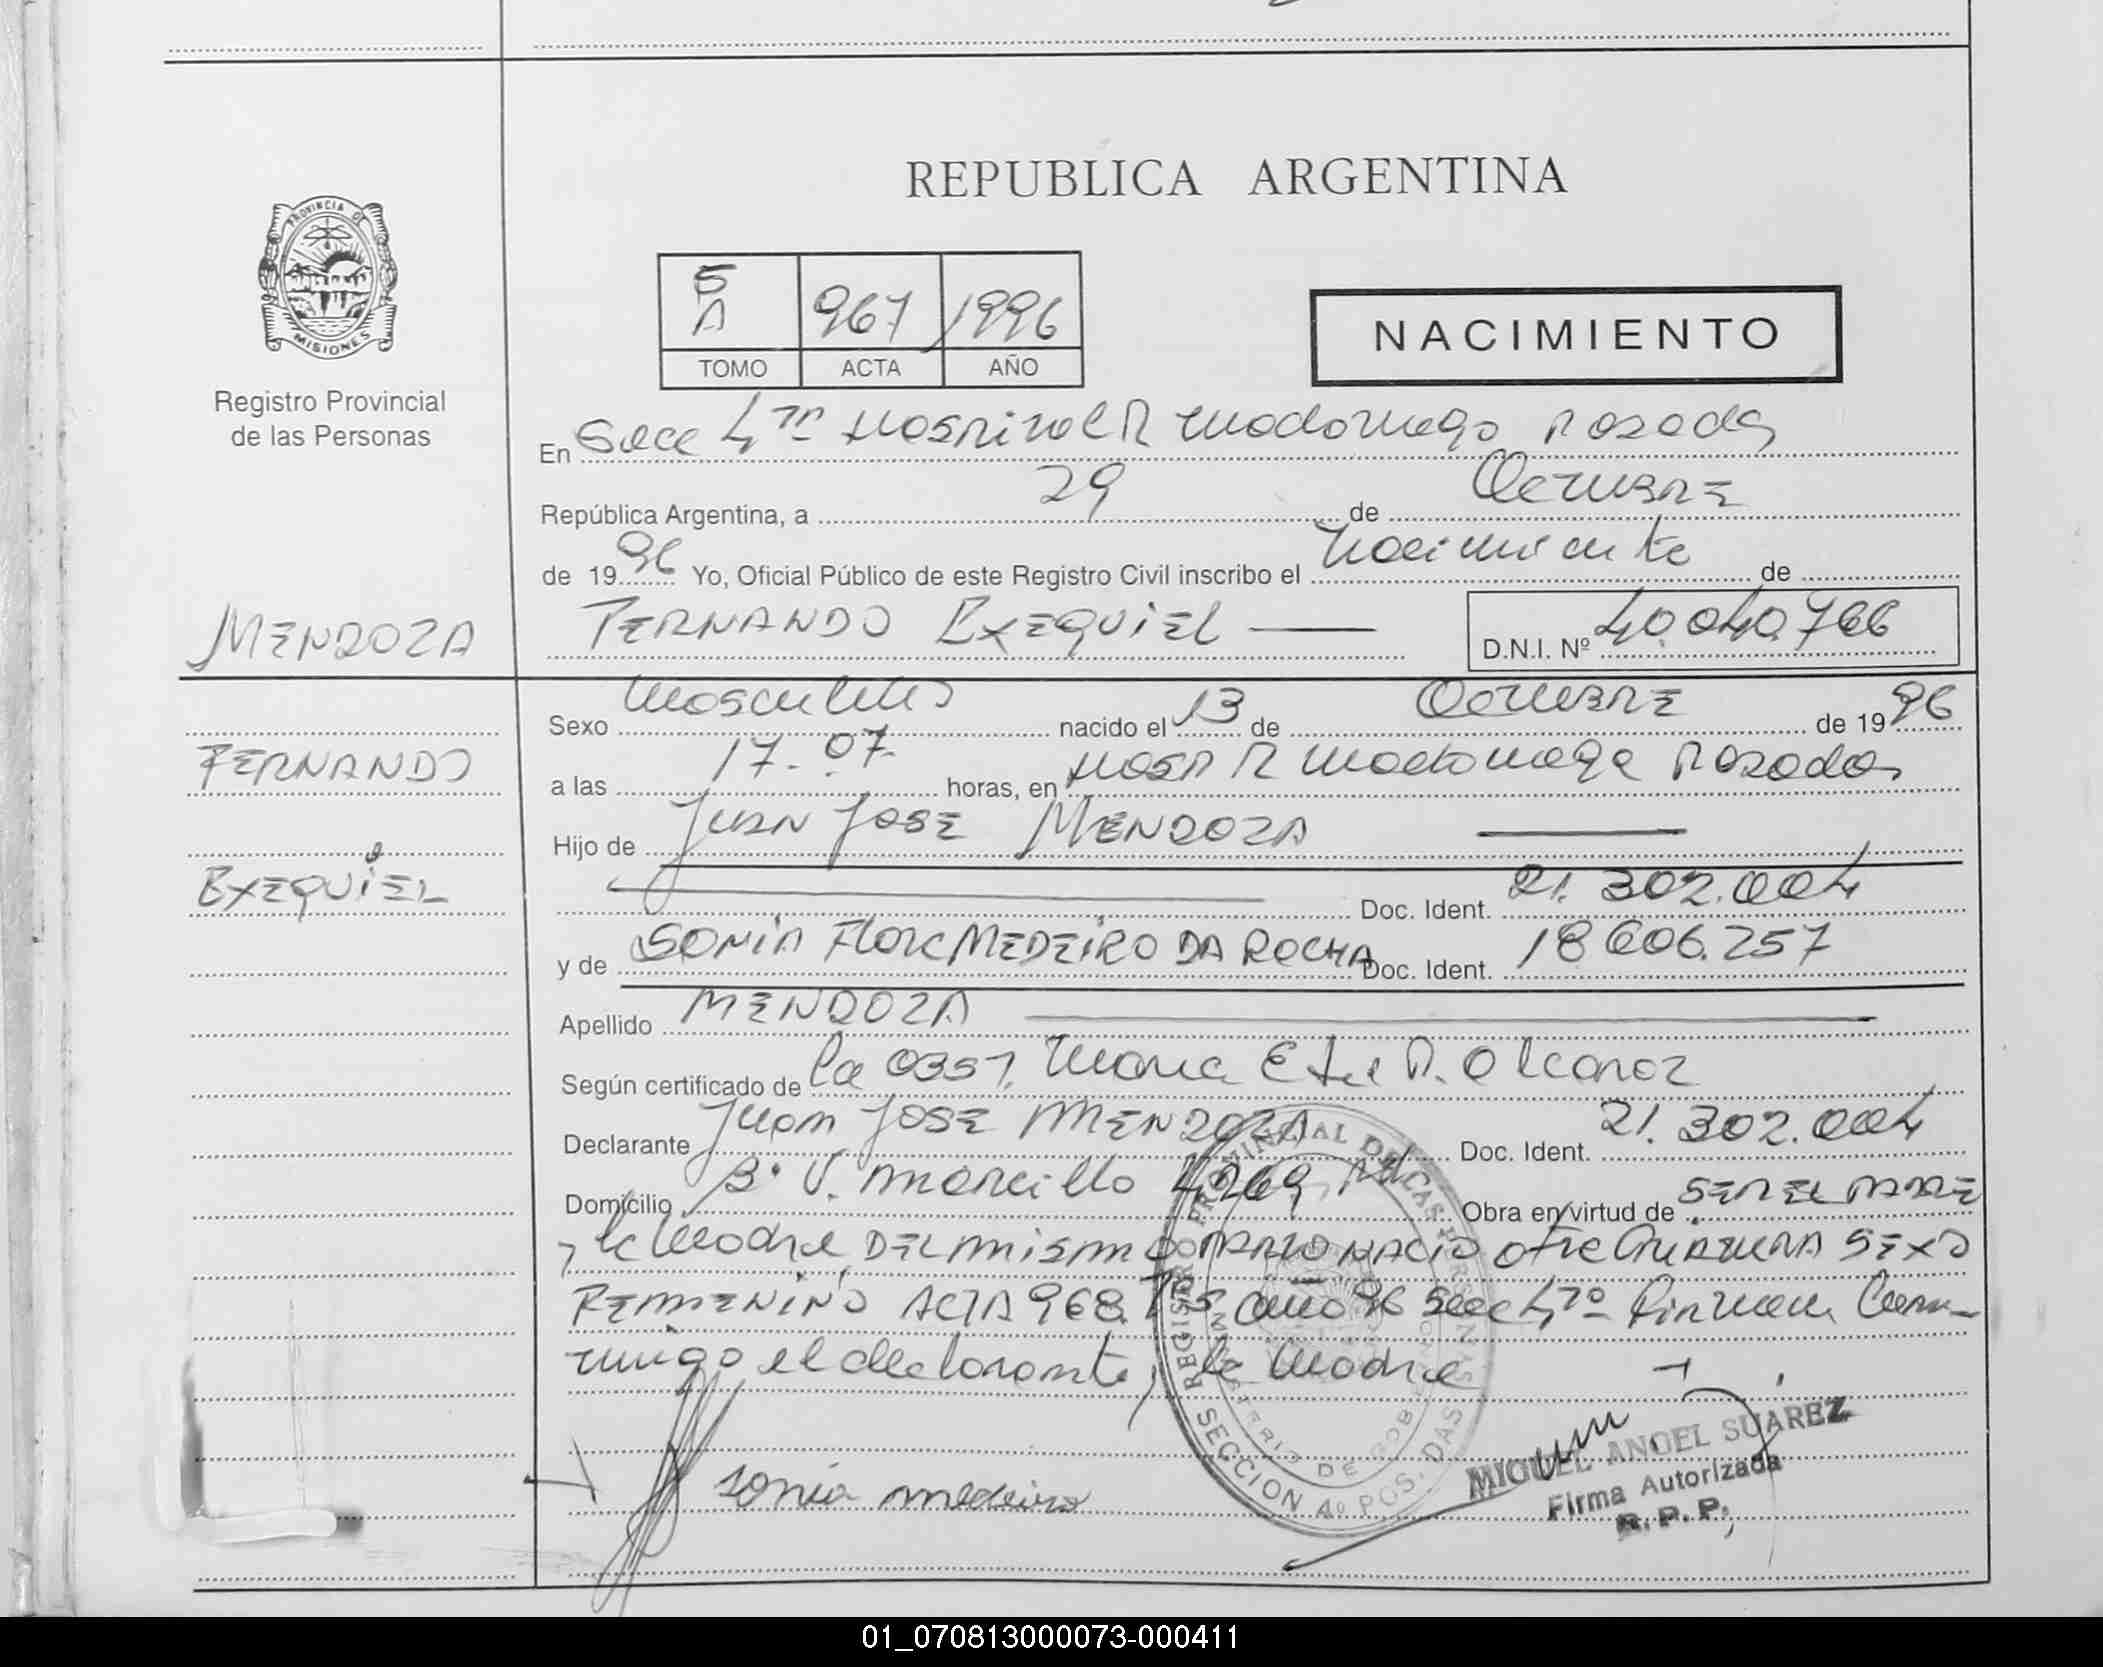 PROVINCIA DE
MISIONES
Registro Provincial
de las Personas
REPUBLICA ARGENTINA
5
A 967 1996
TOMO ACTA AÑO
NACIMIENTO
En Secc 4ta Hospital R Madariaga Posadas
República Argentina, a 29 de Octubre
de 1996 Yo, Oficial Público de este Registro Civil inscribo el Nacimiento de
MENDOZA FERNANDO EXEQUIEL D.N.I. Nº 40.040.766
Sexo Masculino nacido el 13 de Octubre de 1996
FERNANDO
a las 17.07 horas, en Hosp R Madariaga Posadas
Hijo de JUAN JOSE MENDOZA
EXEQUIEL
Doc. Ident. 21.302.004
y de SONIA FLOR MEDEIRO DA ROCHA Doc. Ident. 18606.257
Apellido MENDOZA
Según certificado de la Obst. Maria E de A. Alcaraz
Declarante Juan JOSE MENDOZA Doc. Ident. 21.302.004
Domicilio B° V. Marcillo 4269 Obra en virtud de SER EL PADRE
y la Madre DEL MISMO PARTO NACIO otra CRIATURA SEXO
FEMENINO ACTA 968 T 5 año 96 Secc 4ta Firman Con-
migo el declarante, la Madre
Sonia medeiro
REGISTRO PROVINCIAL DE LAS PERSONAS
MINISTERIO DE GOBIERNO
SECCION 4º POSADAS
MIGUEL ANGEL SUAREZ
Firma Autorizada
R. P. P.
01_070813000073-000411